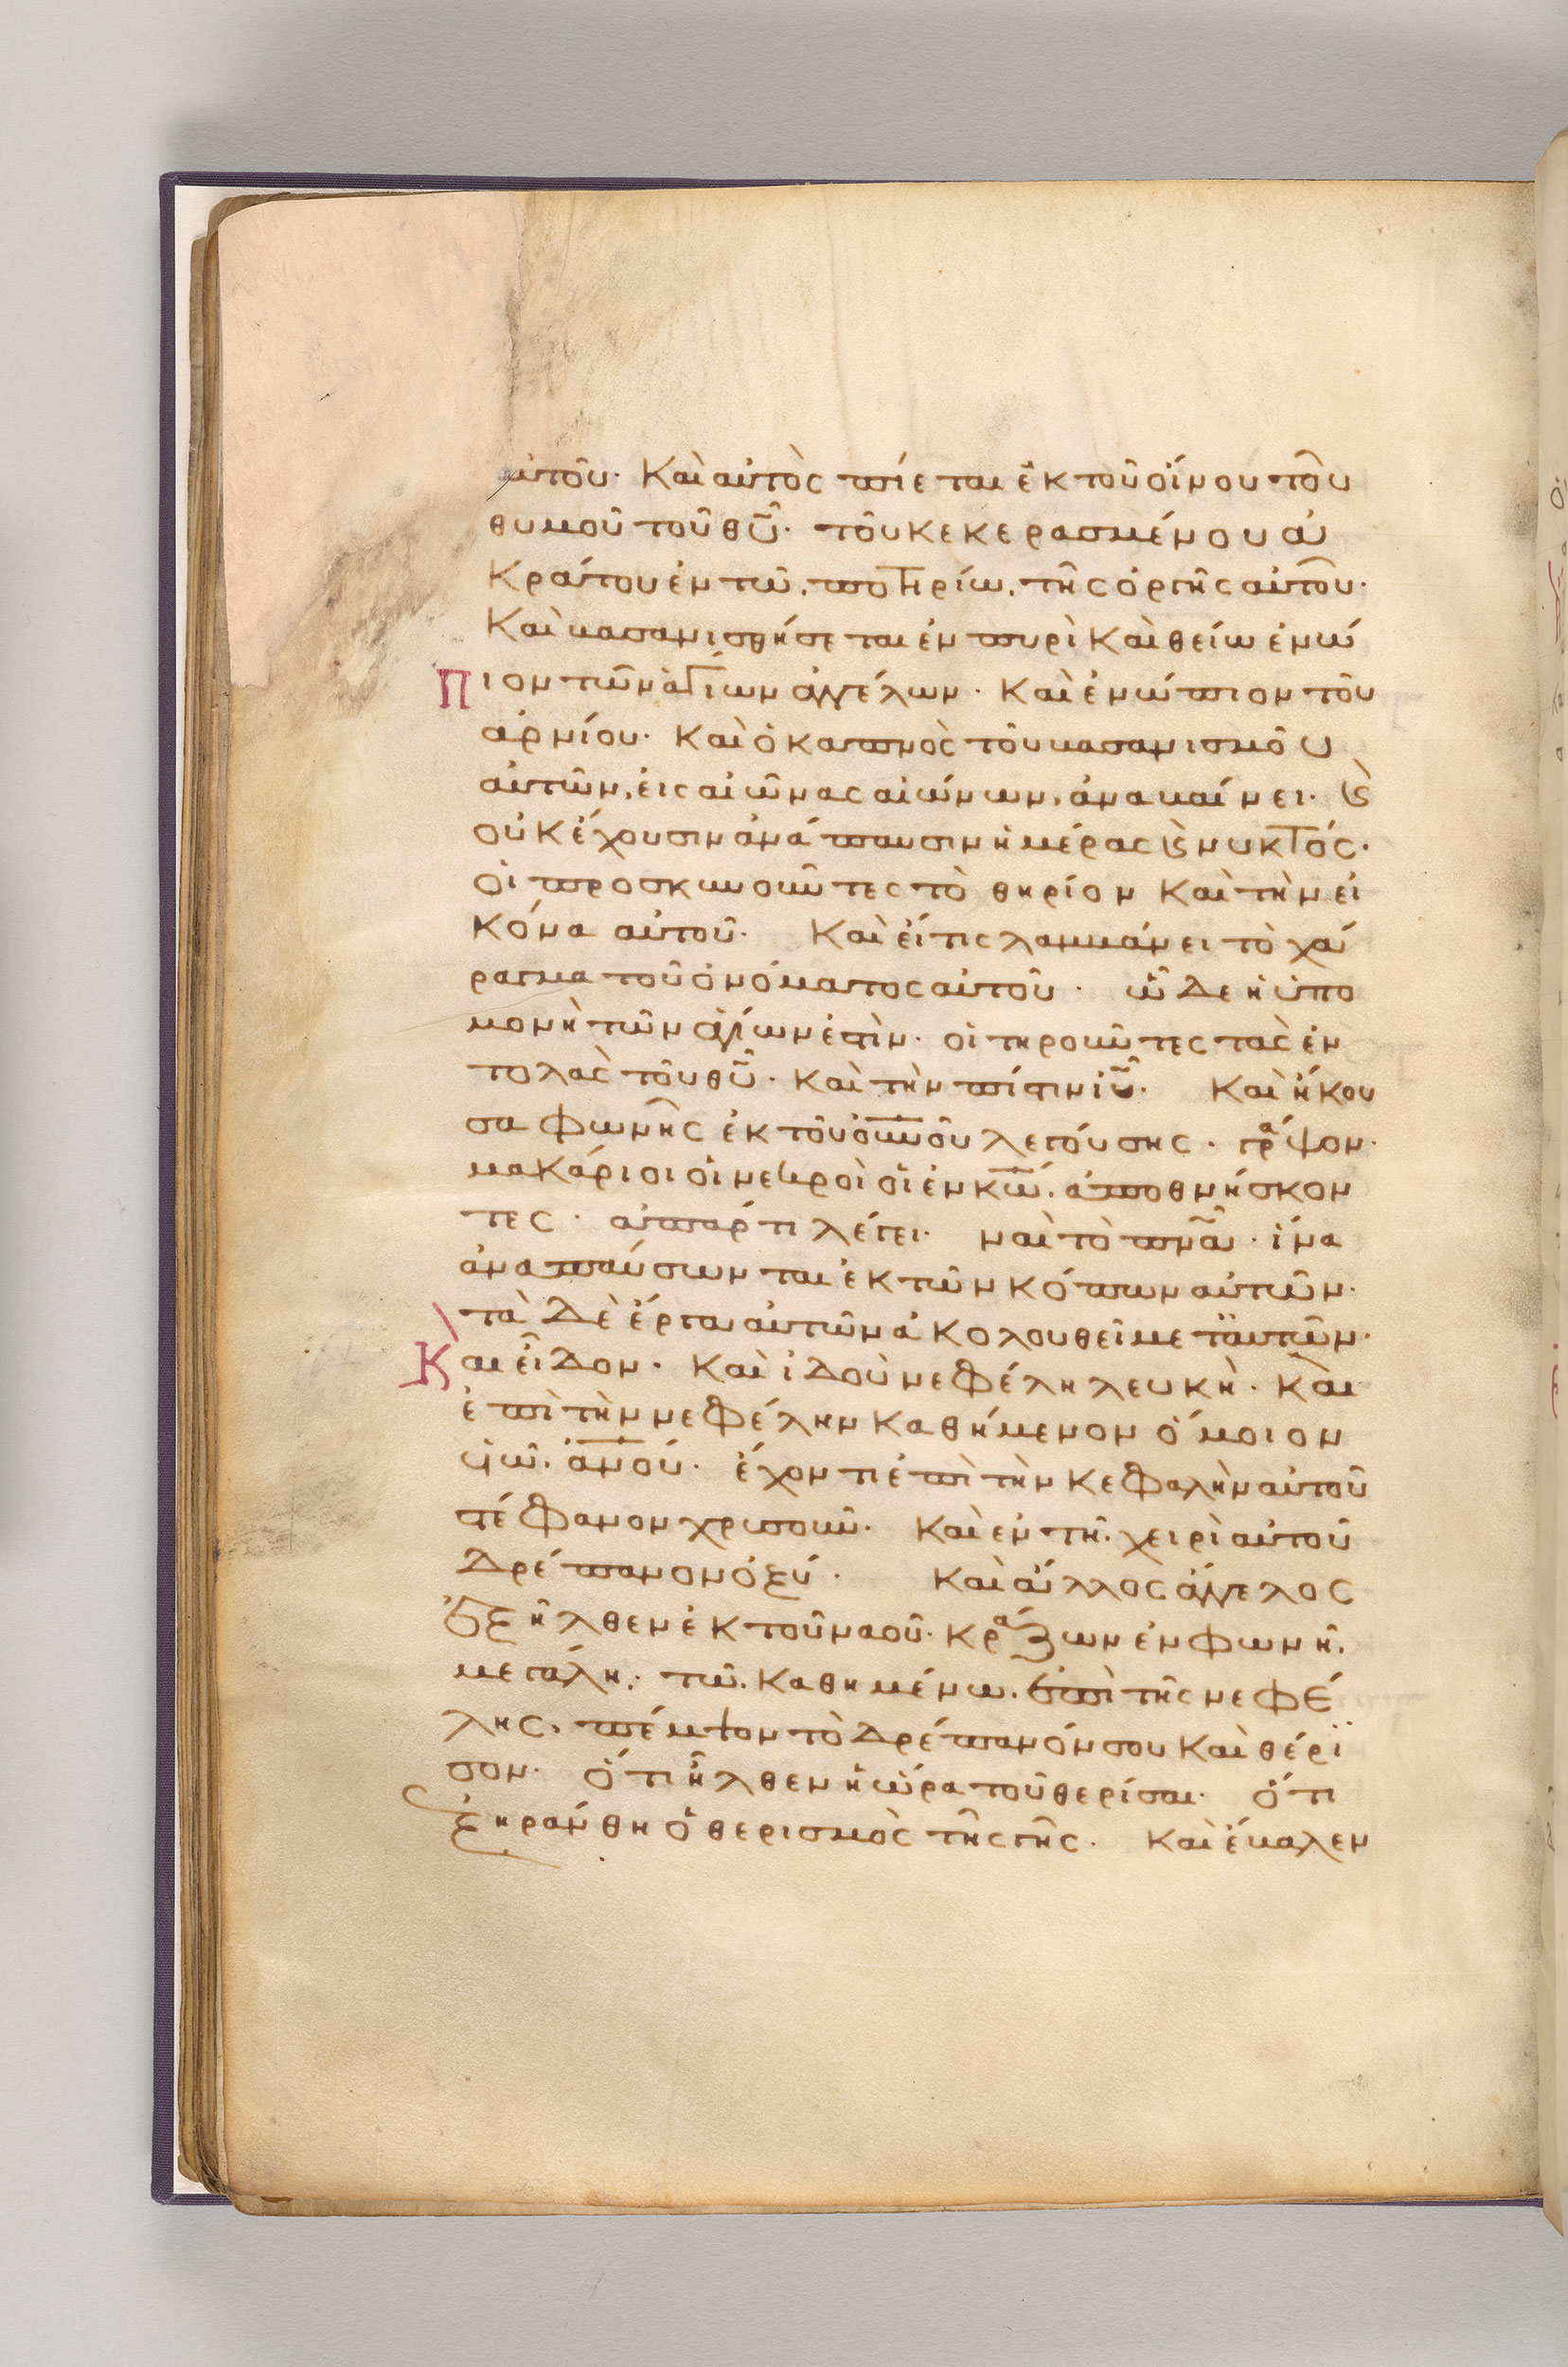 αὐτοῦ· Καὶ αὐτὸς πίεται ἐκ τοῦ οἴνου τοῦ
θυμοῦ τοῦ θῦ· τοῦ κεκερασμένου ἀ
κράτου ἐν τῶ ποτηρίω, τῆς ὀργῆς αὐτοῦ·
Καὶ βασανισθήσεται ἐν πυρὶ Καὶ θείω ἐνώ
πιον τῶν ἁγίων ἀγγέλων· Καὶ ἐνώπιον τοῦ
ἀρνίου· Καὶ ὁ καπνὸς τοῦ βασανισμοῦ
αὐτῶν, εἰς αἰῶνας αἰώνων, ἀναβαίνει· ϗ
οὐκ ἔχουσιν ἀνάπαυσιν ἡμέρας ϗ νυκτός·
οἱ προσκυνοῦντες τὸ θηρίον Καὶ τὴν εἰ
κόνα αὐτοῦ· Καὶ εἴ τις λαμβάνει τὸ χά
ραγμα τοῦ ὀνόματος αὐτοῦ· ὧδε ἡ ὑπο
μονὴ τῶν ἁγίων ἐστίν· οἱ τηροῦντες τὰς ἐν
τολὰς τοῦ θῦ· Καὶ τὴν πίστιν ἰῦ· Καὶ ἤκου
σα φωνῆς ἐκ τοῦ οὐνοῦ λεγούσης· γράψον·
μακάριοι οἱ νεκροὶ οἱ ἐν κω, ἀποθνήσκον
τες· ἀπάρτι λέγει· ναὶ τὸ πνα· ἵνα
ἀναπαύσωνται ἐκ τῶν κόπων αὐτῶν·
τὰ δὲ ἔργα αὐτῶν ἀκολουθεῖ μετ αὐτῶν·
Καὶ εἶδον· Καὶ ἰδοὺ νεφέλη λευκὴ· Καὶ
ἐπὶ τὴν νεφέλην καθήμενον ὅμοιον
υἱῶ ανου· ἔχοντι ἐπὶ τὴν κεφαλὴν αὐτοῦ
στέφανον χρυσοῦν· Καὶ ἐν τῆ χειρὶ αὐτοῦ
δρέπανον ὀξύ· Καὶ ἄλλος ἄγγελος
ἐξῆλθεν ἐκ τοῦ ναοῦ· κράζων ἐν φωνῆ
μεγάλη· τῶ καθημένω ἐπὶ τῆς νεφέ
λης, πέμψον τὸ δρέπανόν σου Καὶ θέρϊ
σον· ὅτι ἦλθεν ἡ ὥρα τοῦ θερίσαι· ὅτι
ἐξηράνθη ὁ θερισμὸς τῆς γῆς· Καὶ ἔβαλεν